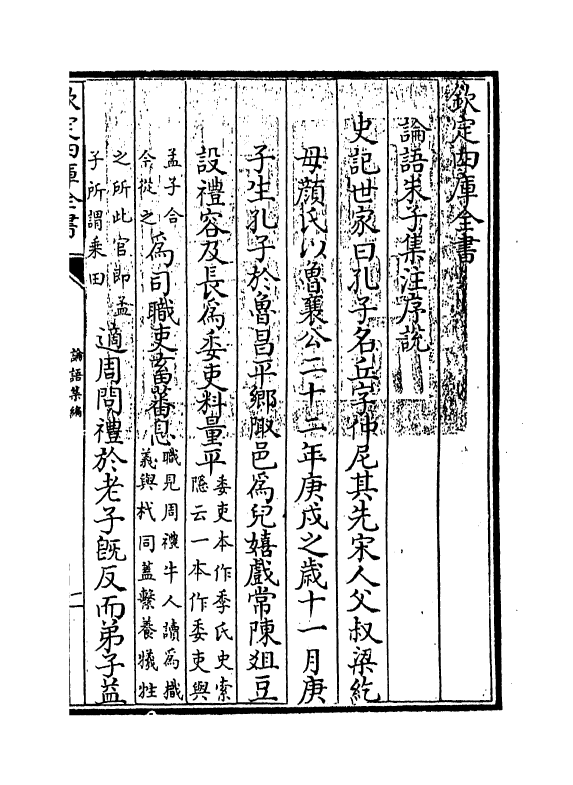 欽定四庫全書
論語朱子集注序説
史記世家曰孔子名丘字仲尼其先宋人父叔梁紇
母顔氏以魯襄公二十二年庚戌之歳十一月庚
子生孔子於魯昌平鄉陬邑為兒嬉戲常陳爼豆
設禮容及長為委吏料量平
委吏本作季氏史索
隱云一本作委吏與
孟子合
今從之
為司職吏畜蕃息
職見周禮牛人讀為樴
義與杙同蓋繫養犧牲
之所此官即孟
子所謂乘田
適周問禮於老子既反而弟子益
欽定四庫全書
論語集編
一